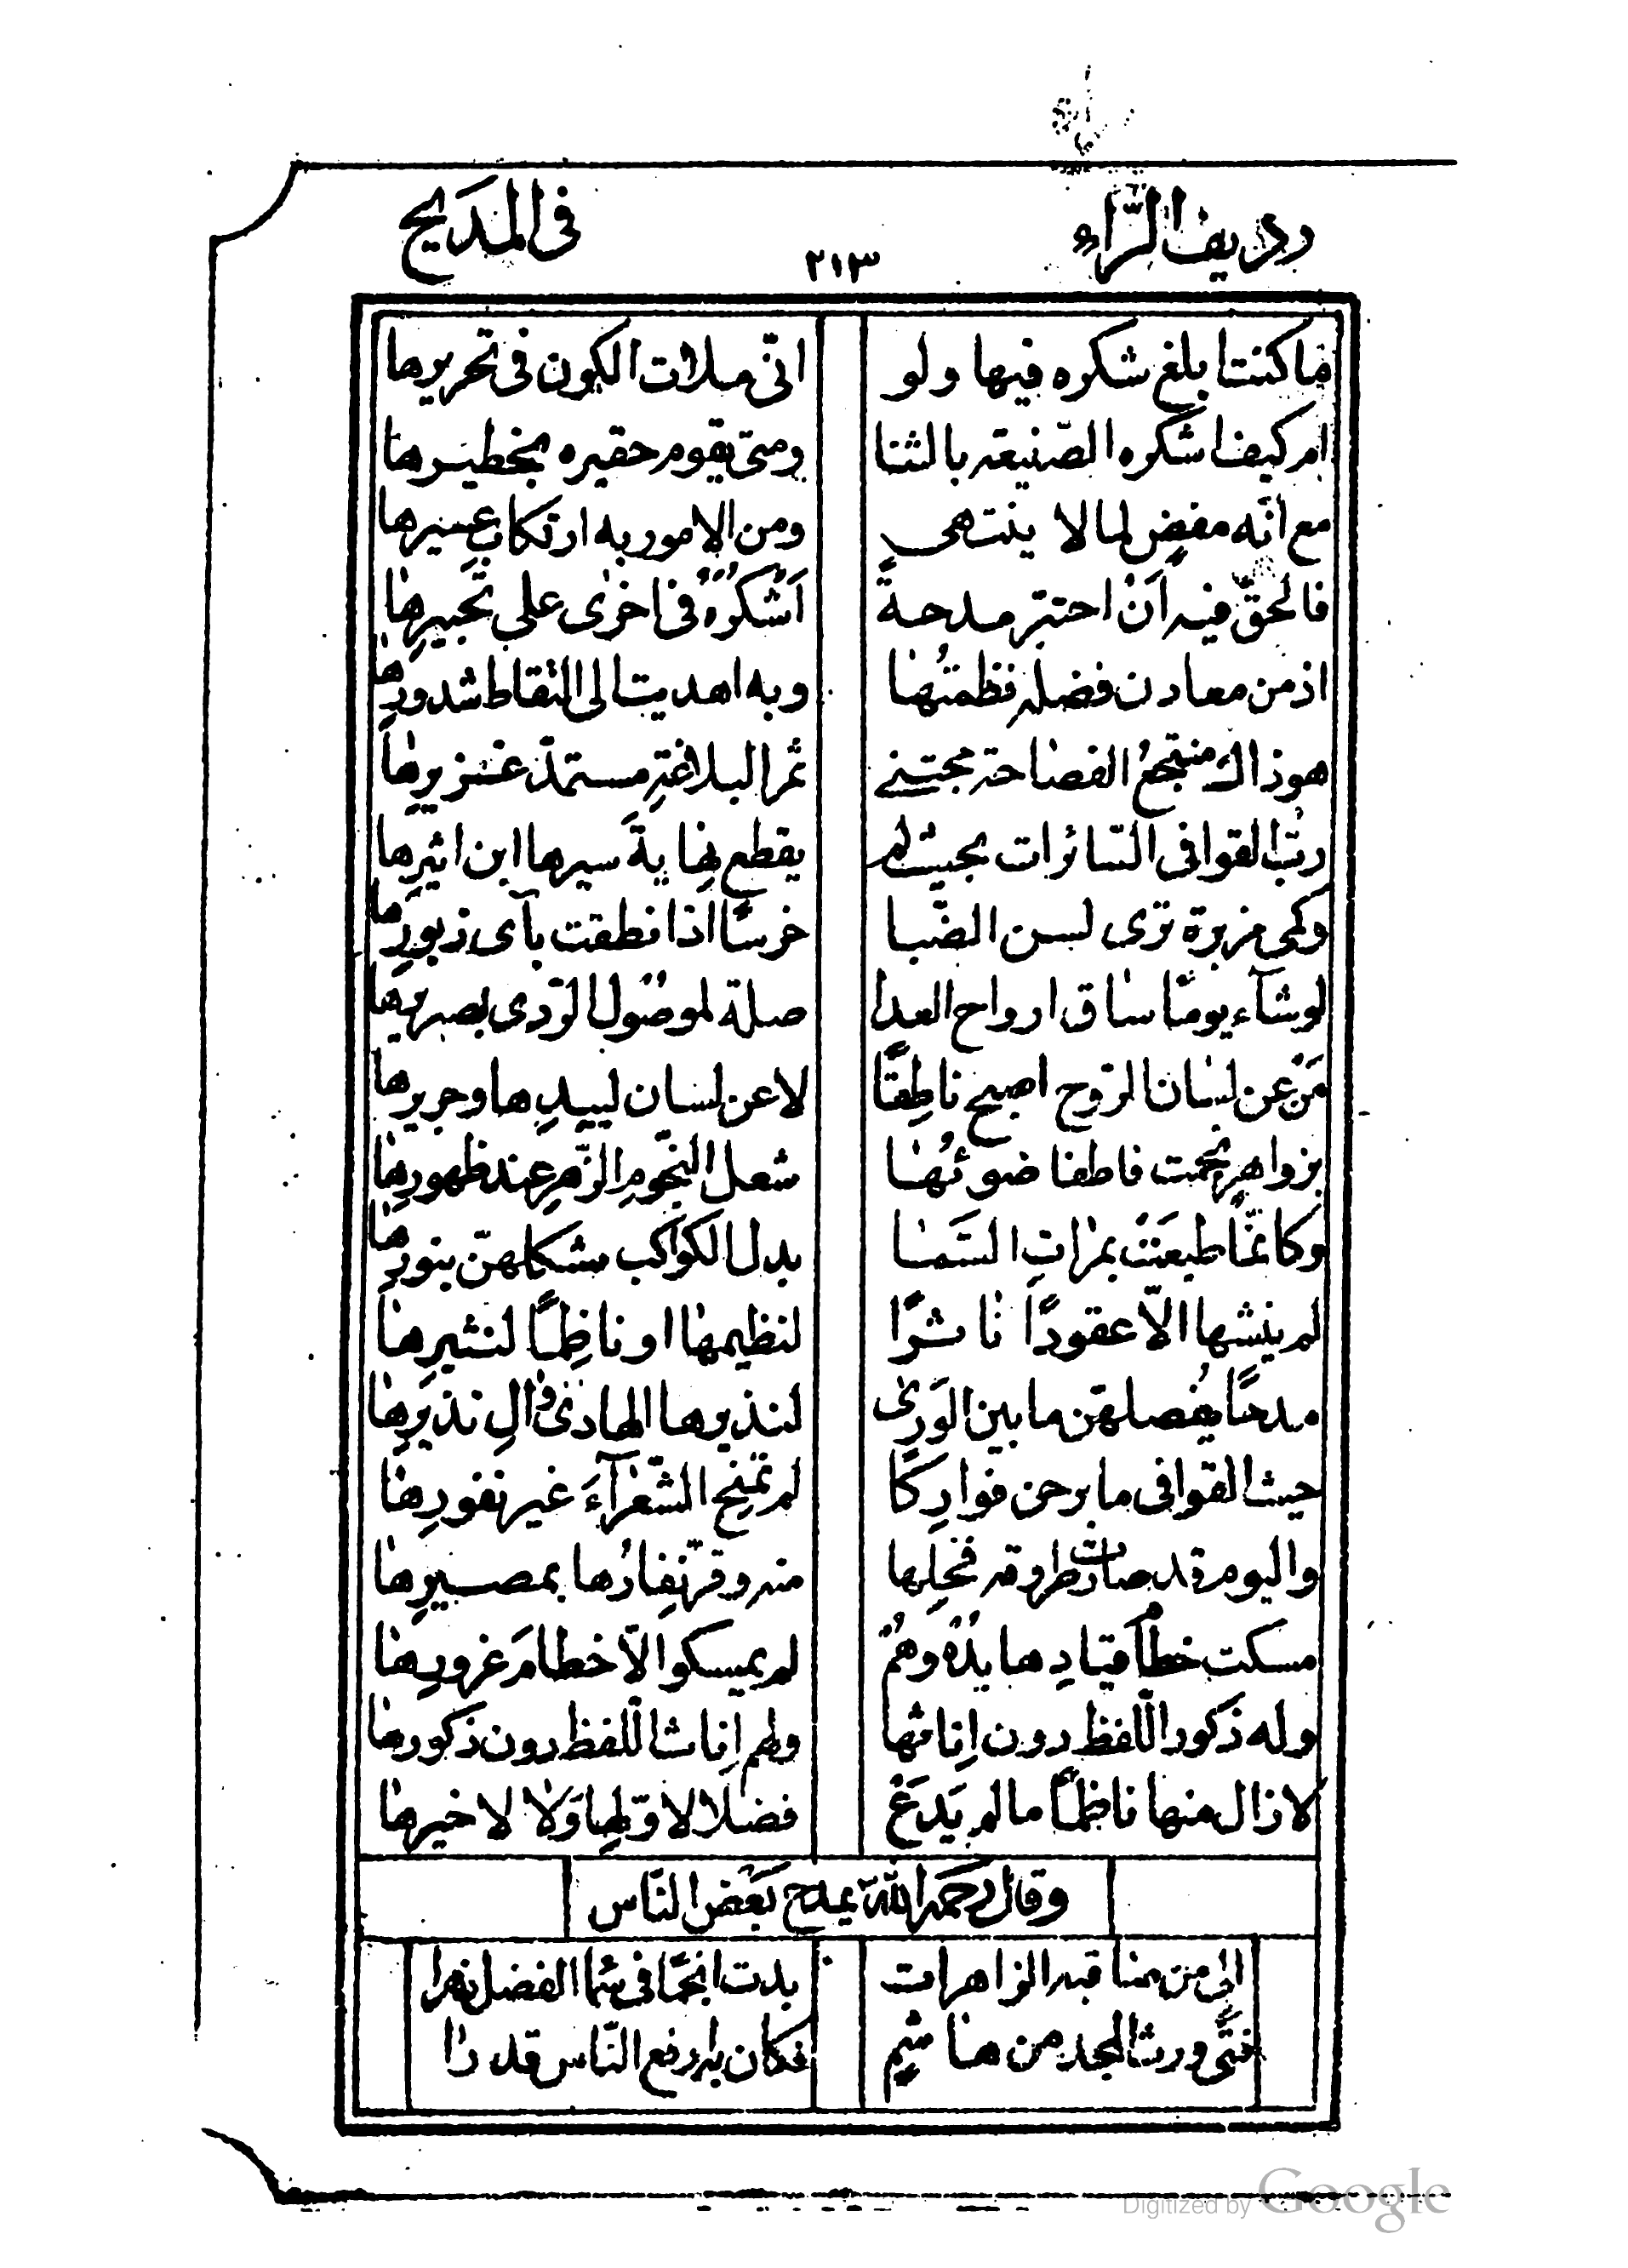 ردیف الرّاء ٢١٣ فى المديح
ماكنت ابلغ شكره فيها ولو انّى ملات الكون فى تحريرها
ام كيف اشكره الصّنيعة بالثنا ومتى يقوم حقيره بخطيرها
مع انّه مفضٍ لما لا ينتهى ومن الامور به ارتكاب عسيرها
فالحقّ فيه اَنْ احتبّر مدحةً اَشْكُرُهُ فى اخرى على تحبيرها
اذ من معادن فضله نظمتُها وبه اهديت الى التقاط شذورِها
هو ذاك منتجعُ الفصاحة مجتنى ثمر البلاغةِ مستمدّ غزيرِها
ربّ القوافى السّائرات بحيث لم يقطع نهايةَ سيرها ابن اثيرِها
وكمى مزبرة ترى لسن الضّبا خرسًا اذا نطقت بآى زبورِها
لو شآء يومًا ساق ارواح العدا صلة لموصُول الرّدى بصريرها
مَنْ عن لسان الرّوح اصبح ناطِقًا لا عن لسان لبيدِها وجريرها
بزواهرٍ نجمت فاطفا ضوئُها شعل النجومِ الزّهرِ عند ظهورِها
وكانّمَا طبعَتْ بمرٰاتِ السّما بدل الكواكب مشكلهنّ بنورِها
لم ينشها الّا عقودًا ناثرًا لنظيمها او ناظِمًا لنثيرِها
مدحًا يُفصلهنّ ما بين الوَرى لنذيرها الهادى وَالِ نذيرِها
حيث القوافى ما برحن فوارِكًا لم تمنح الشّعرآءَ غير نفورِها
واليوم قد صارت طروقة فحلِها منه وقرّ نِفارُها بمصيرِها
مسكت خطام قيادِها يدُهُ وهُمُ لم يمسكوا الّا خطامَ غرورِها
وله ذكور اللّفظ دون اِناثها ولهم اِناث اللّفظ دون ذكورها
لا زال منها ناظِمًا ما لم يَدَعْ فضلا لاوّلها وَلا لاخيرها
وقال رحمه الله يمدح بَعْضَ النّاس
الى من مناقبه الزاهرات بدت انجمًا فى سما الفضل زهرا
فتًى ورث المجد من هاشمٍ فكان بارفع النّاس قدرا
Digitized by Google